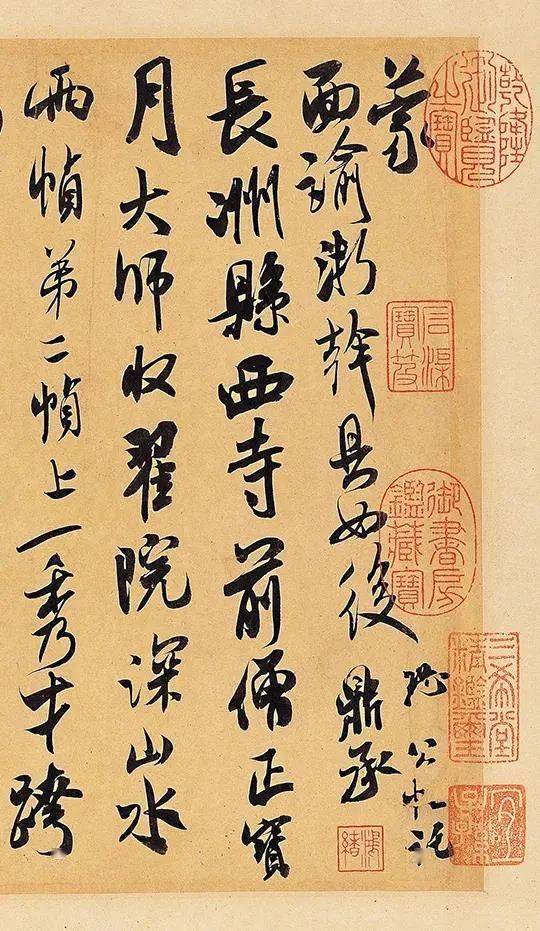 蒙
面諭浙幹具如後
長洲縣西寺前僧正寶
月大師收翟院深山水
兩幀弟二幀上一秀才跨
鼎承
乾隆御覽之寶
石渠寶笈
御書房鑑藏寶
三希堂精鑑璽
宜子孫